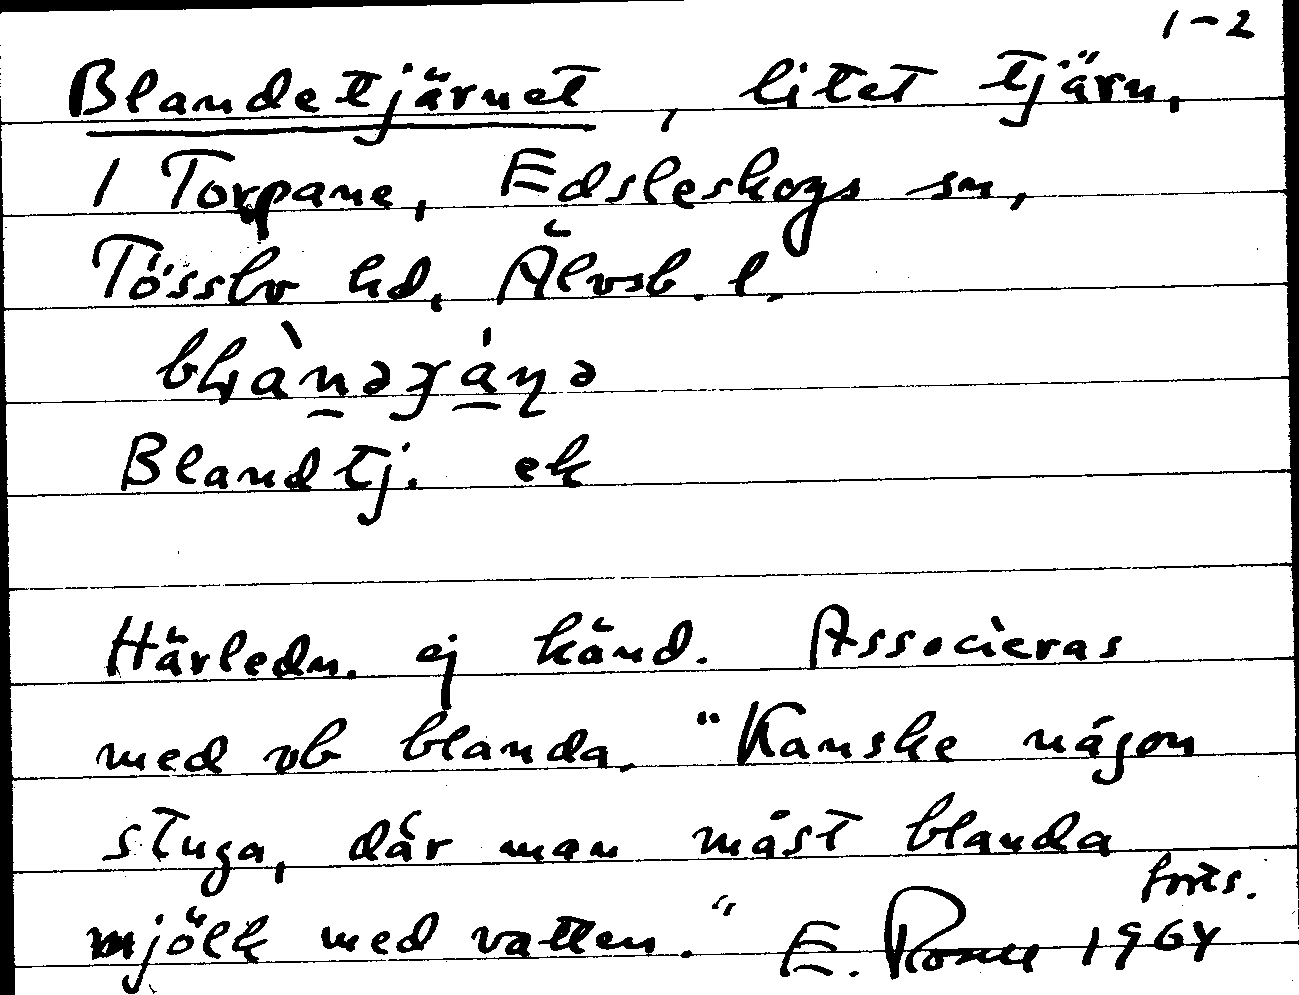 1-2
Blandetjärnet, litet tjärn,
1 Torpane, Edsleskogs sn,
Tössbo hd, Älvsb. l.
Blandtj. ek
Härledn. ej känd. Associeras
med vb blanda. "Kanske någon
stuga, där man måst blanda
forts.
mjölk med vatten." E. 1964